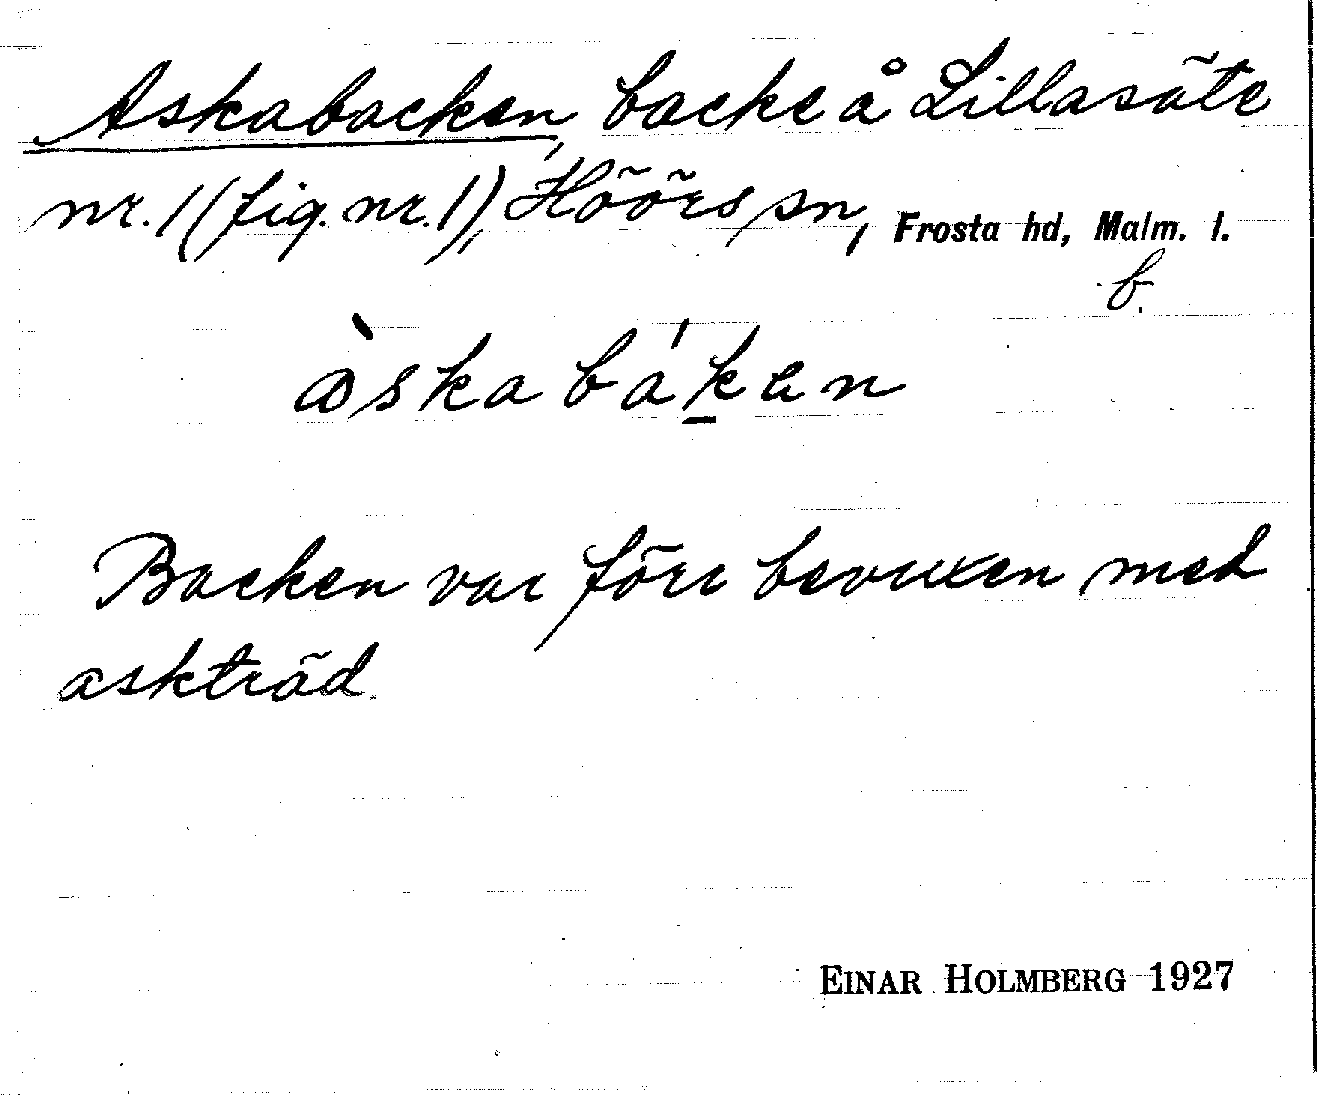 Askabacken, backe å Lillasäte
nr. 1 (fig. nr. 1), Höörs sn, Frosta hd, Malm. l.
b.
àskabákan
Backen var förr bevuxen med
askträd.
EINAR HOLMBERG 1927